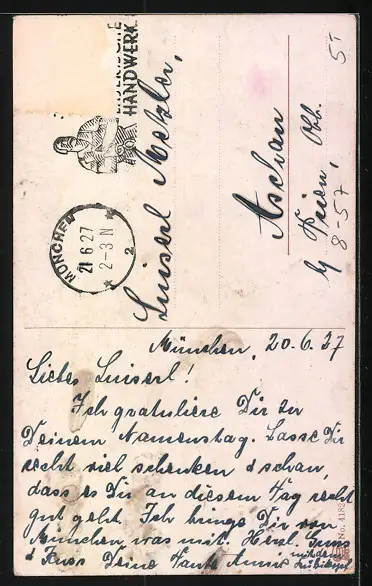 BAYERISCHE
HANDWERK
MÜNCHEN
21 6 27
2-3 N
2
Luiserl Metzler,
Aschau
b/ Prien, Obb.
8-57
5T
München, 20.6.27
Liebes Luiserl!
Ich gratuliere Dir zu
Deinem Namenstag. Lasse Dir
recht viel schenken & schau,
dass es Dir an diesem Tag recht
gut geht. Ich bringe Dir von
München was mit. Herzl. Gruss
& Kuss Deine Tante Anni
mit dem
No. 4182